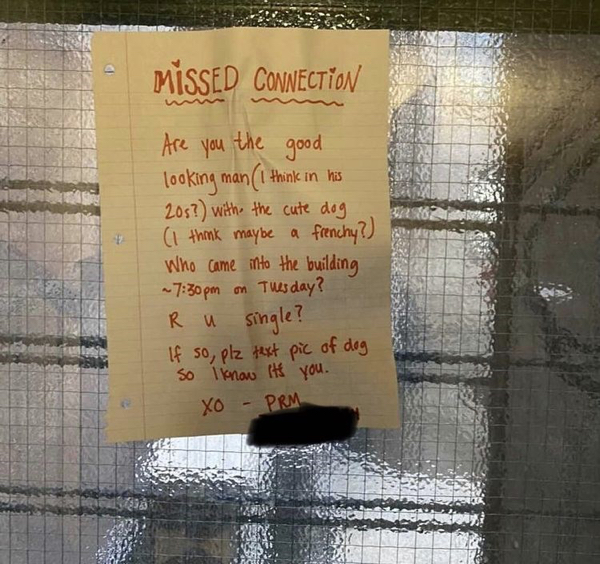 MiSSED CONNECTiON
Are you the good
looking man (I think in his
20s?) with the cute dog
(I think maybe a frenchy?)
Who came into the building
~7:30pm on Tuesday?
R u single?
If so, plz text pic of dog
so I know its you.
XO - PRM